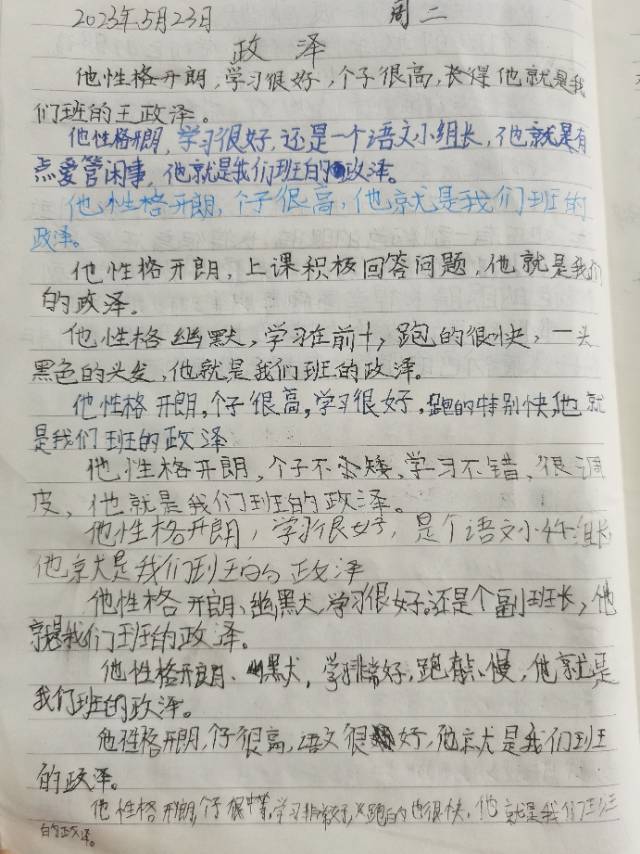 2023年5月23日 周二
政泽
他性格开朗,学习很好,个子很高,长得他就是我
们班的王政泽。
他性格开朗,学习很好,还是一个语文小组长,他就是有
点爱管闲事,他就是我们班的政泽。
他性格开朗,个子很高,他就是我们班的
政泽。
他性格开朗,上课积极回答问题,他就是我们
的政泽。
他性格幽默,学习在前十,跑的很快,一头
黑色的头发,他就是我们班的政泽。
他性格开朗,个子很高,学习很好,跑的特别快,他就
是我们班的政泽
他性格开朗,个子不矮,学习不错,很调
皮,他就是我们班的政泽。
他性格开朗,学习很好,是个语文小组长
他就是我们班的政泽
他性格开朗、幽默,学习很好。还是个副班长,他
就是我们班的政泽。
他性格开朗、幽默,学习非常好,跑有点慢,他就是
我们班的政泽。
他性格开朗,个子很高,语文很好,他就是我们班
的政泽。
他性格开朗,个子很高,学习非常好,跑的也很快,他就是我们班
的政泽。